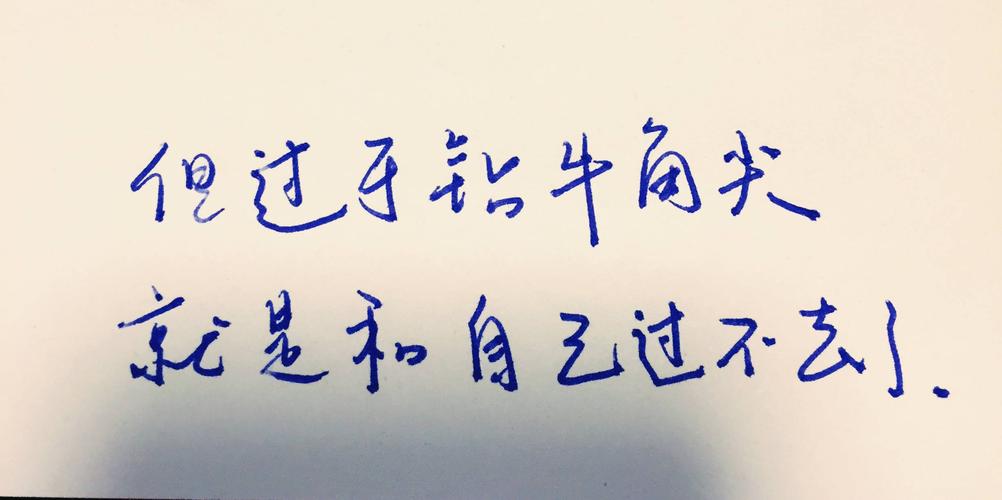 但过于钻牛角尖
就是和自己过不去了.